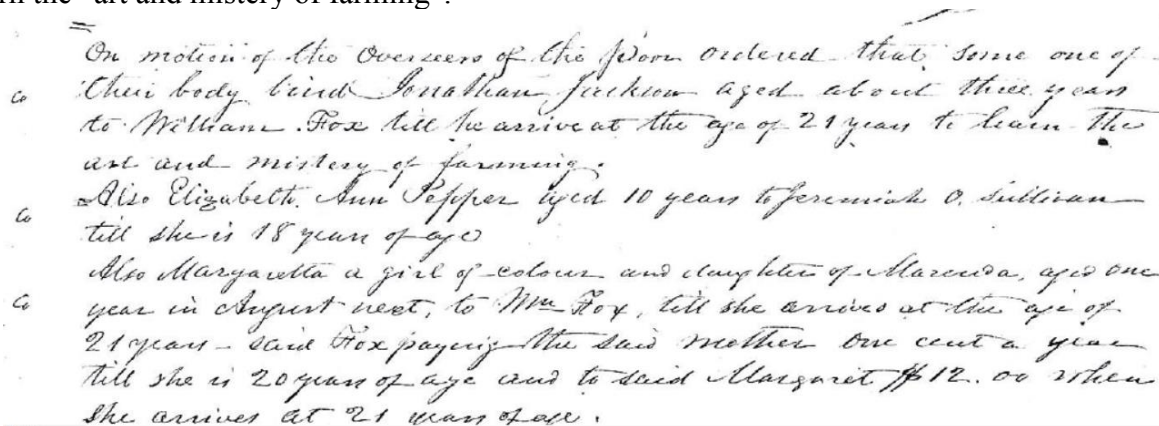 rn the "art and mistery of farming".
On motion of the Overseers of the Poor ordered that some one of
Co their body bind Jonathan Jackson aged about three years
to William Fox till he arrive at the age of 21 years to learn the
art and mistery of farming.
Co Also Elizabeth Ann Pepper aged 10 years to Jeremiah O. Sullivan
till she is 18 years of age
Also Margaretta a girl of colour and daughter of Marenda, aged one
Co year in August next, to Wm Fox, till she arrives at the age of
21 years - said Fox paying the said mother one cent a year
till she is 20 years of age and to said Margaret $12.00 when
she arrives at 21 years of age.